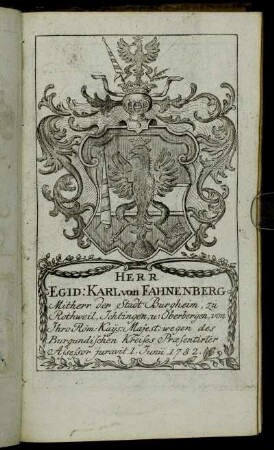 HERR
ÆGID: KARL von FAHNENBERG
Mitherr der Stadt Burgheim, zu
Rothweil, Ichtingen, u: Oberbergen, von
Ihro Röm: Kays: Majest: wegen des
Burgundischen Kreises Præsentirter
Assessor juravit 1. Junii 1782.